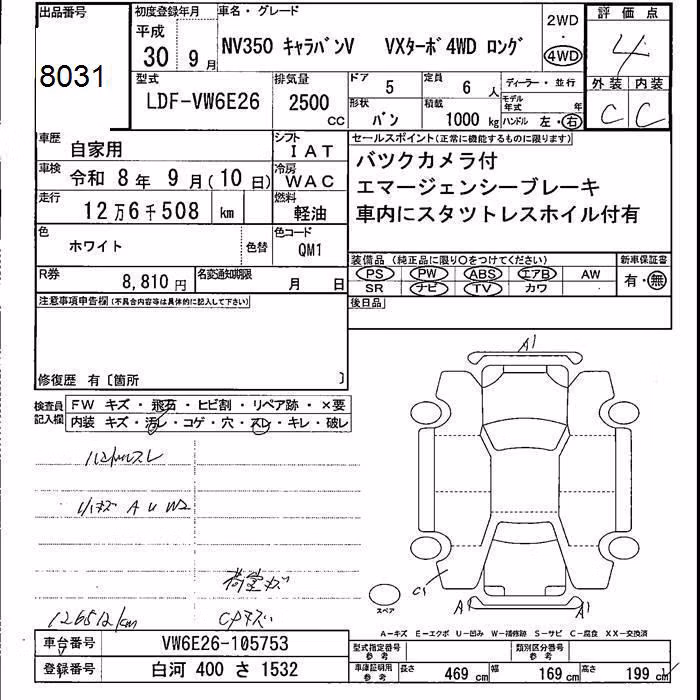 出品番号
8031
初度登録年月
平成
30 9月
車名・グレード
NV350 キャラバンV VXターボ4WD ロング
2WD
・
4WD
評価点
4
外装 内装
C C
型式
LDF-VW6E26
排気量
2500 CC
ドア 5
定員 6 人
ディーラー・並行
形状 バン
積載 1000 kg
モデル年式 年
ハンドル 左・右
車歴 自家用
シフト IAT
車検 令和 8年 9月(10日)
冷房 WAC
走行 12万6千508 km
燃料 軽油
色 ホワイト
色替
色コード QM1
R券 8,810円
名変通知期限 月 日
セールスポイント(正常に機能するものに限ります)
バツクカメラ付
エマージェンシーブレーキ
車内にスタツトレスホイル付有
装備品 (純正品に限り○をつけてください)
PS PW ABS エアB AW
SR ナビ TV カワ
新車保証書
有・無
後日品
注意事項申告欄(不具合内容等は具体的に記入して下さい)
修復歴 有〔箇所 〕
検査員記入欄
FW キズ・飛石・ヒビ割・リペア跡・×要
内装 キズ・汚レ・コゲ・穴・スレ・キレ・破レ
ハンドルスレ
小キズ A U W2
荷室ガ
126512km
CPキズ
A1
C1
A1
A1
スペア
A-キズ E-エクボ U-凹み W-補修跡 S-サビ C-腐食 XX-交換済
車台番号 VW6E26-105753
登録番号 白河 400 さ 1532
型式指定番号 参考
類別区分番号 参考
車庫証明用 参考
長さ 469 cm 幅 169 cm 高さ 199 cm